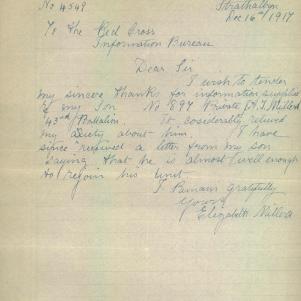 No 4549 Strathalbyn
Dec 16th 1917
To the Red Cross
Information Bureau
Dear Sir
I wish to tender
my sincere thanks for information supplied
of my Son No 897 Private
43rd Battalion. It cosiderably relieved
my Axiety about him. I have
since received a letter from my son
saying that he is almost well enough
to rejoin his unit
I Remain gratefully
Yours
Elizabeth Miller